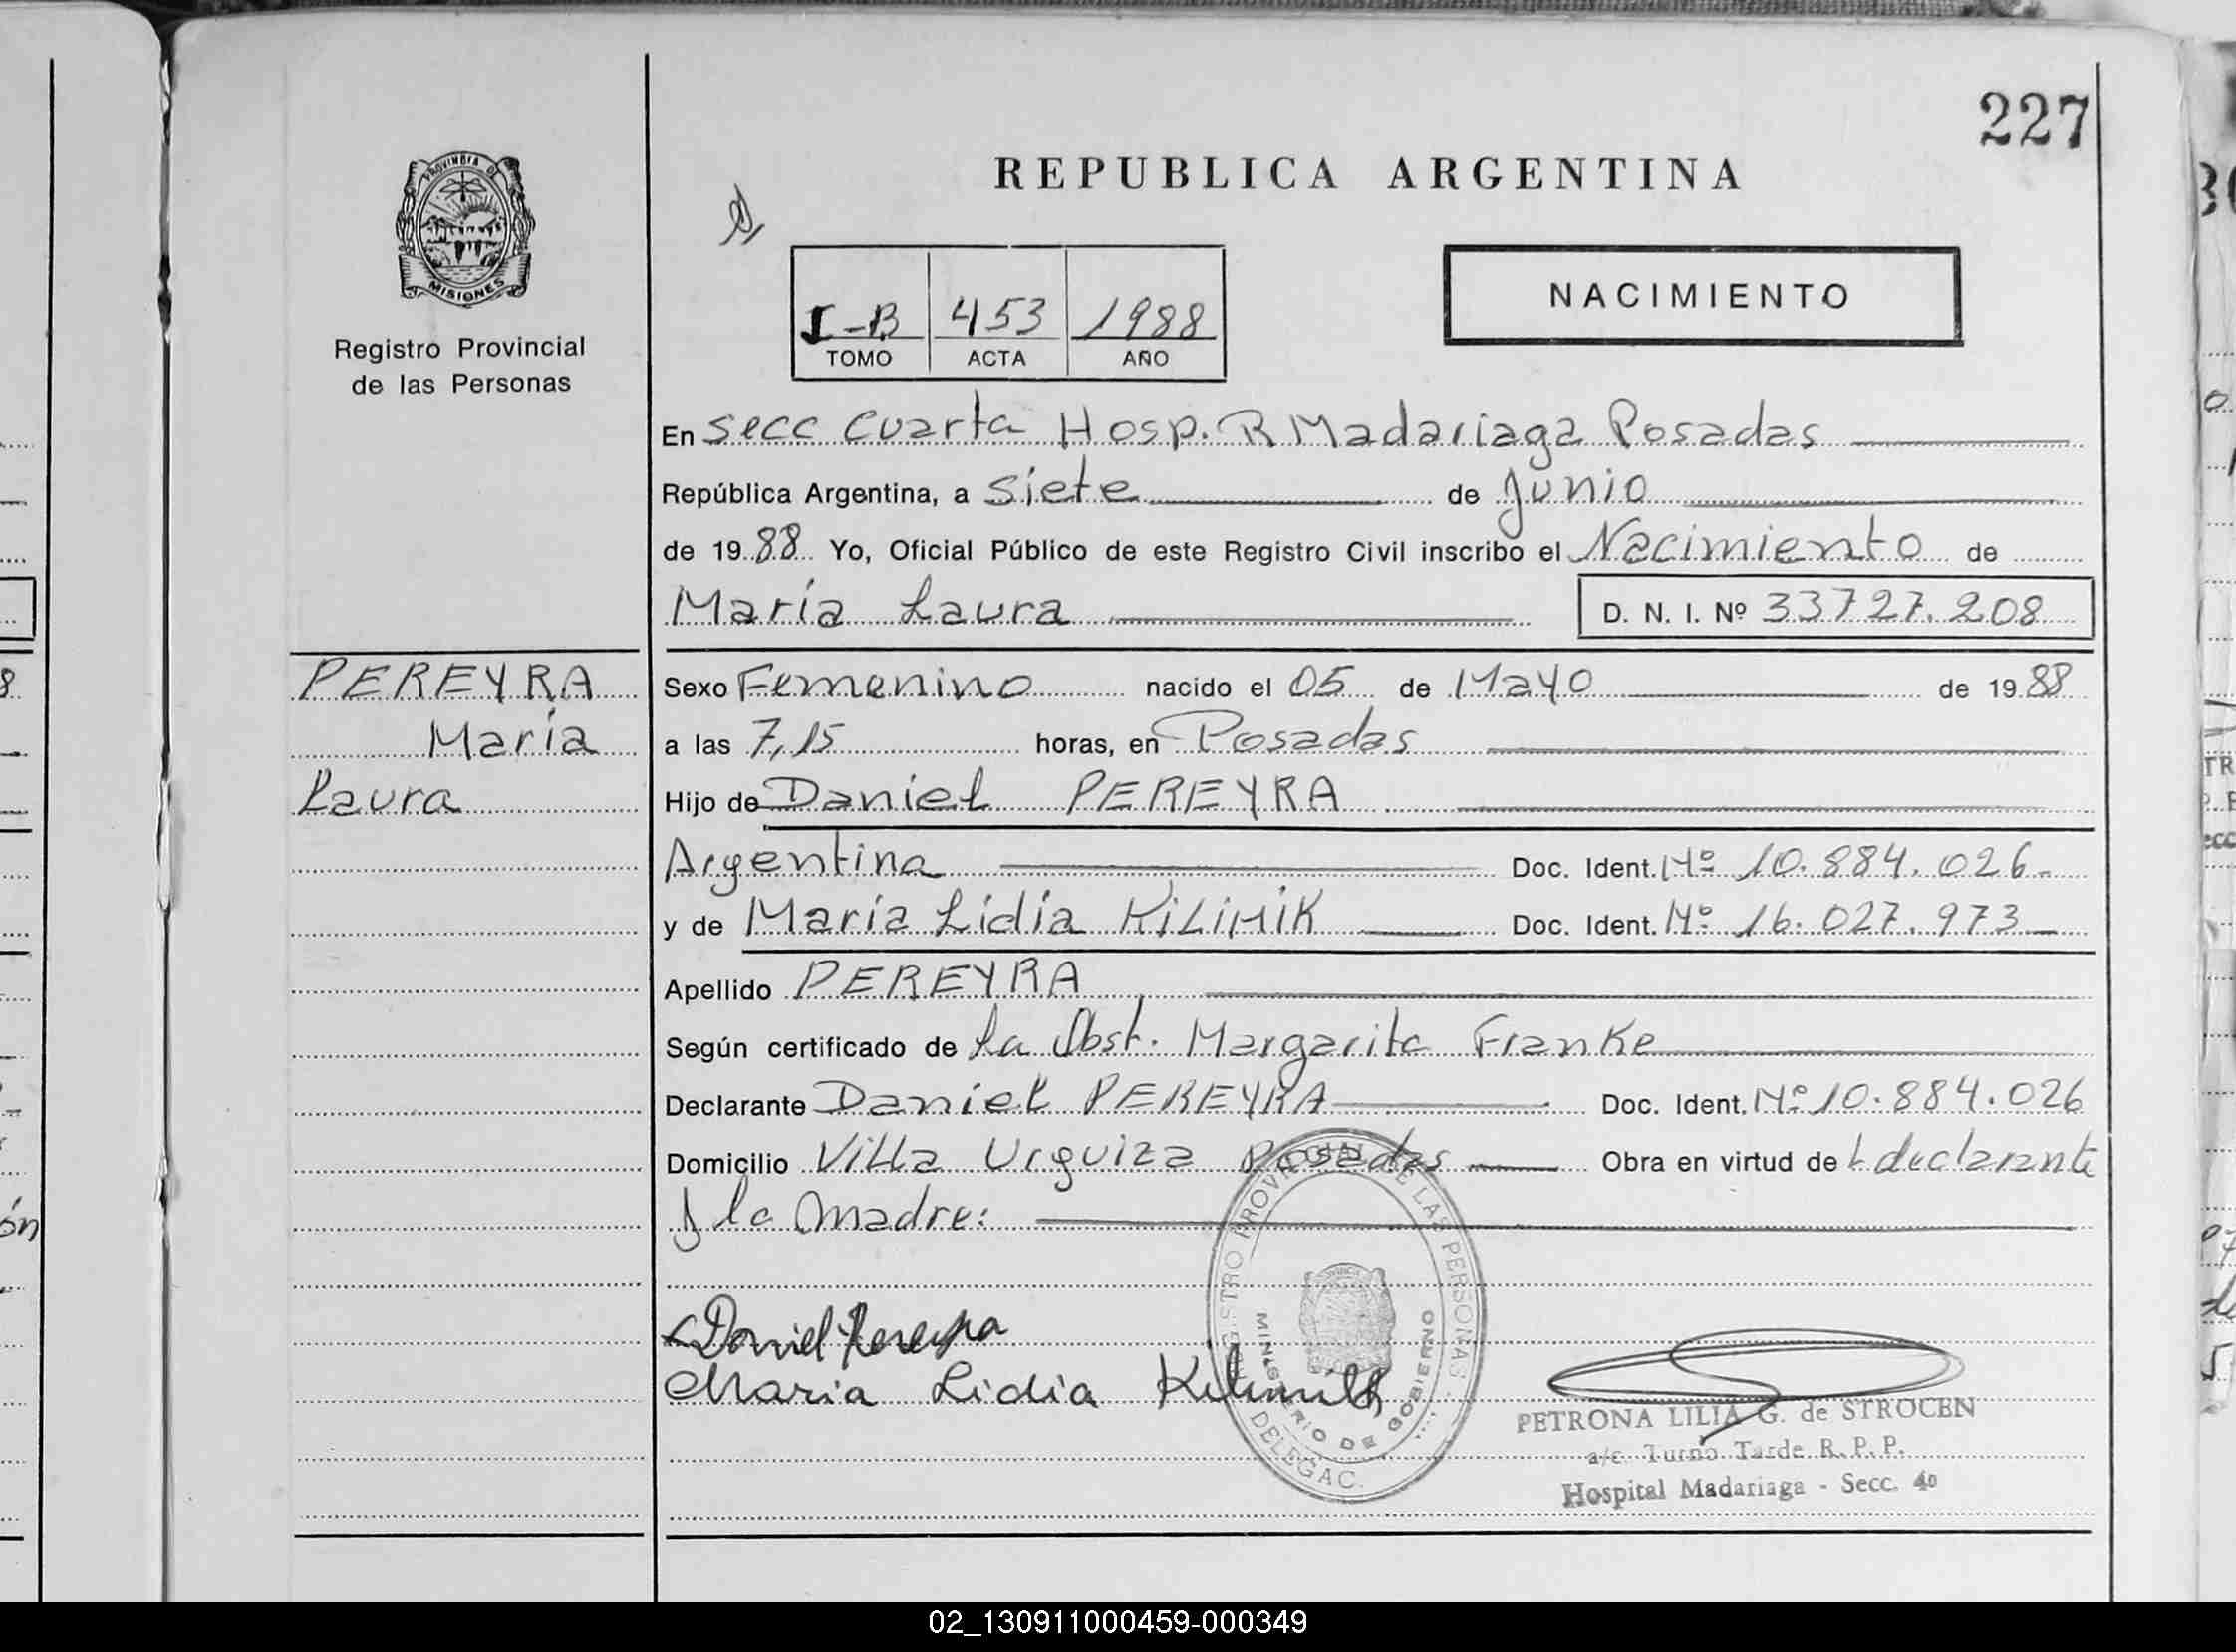 227
REPUBLICA ARGENTINA
PROVINCIA DE
MISIONES
Registro Provincial
de las Personas
I-B 453 1988
TOMO ACTA AÑO
NACIMIENTO
En secc cuarta Hosp. R Madariaga Posadas
República Argentina, a siete de Junio
de 19 88 Yo, Oficial Público de este Registro Civil inscribo el Nacimiento de
María Laura D. N. I. Nº 33727.208
PEREYRA
María
Laura
Sexo Femenino nacido el 05 de Mayo de 19 88
a las 7,15 horas, en Posadas
Hijo de Daniel PEREYRA
Argentina Doc. Ident. Nº 10.884.026.
y de María Lidia KILIMIK Doc. Ident. Nº 16.027.973
Apellido PEREYRA
Según certificado de La Obst. Margarita Franke
Declarante Daniel PEREYRA Doc. Ident. Nº 10.884.026
Domicilio Villa Urquiza Posadas Obra en virtud de L declarante
y la madre:
Daniel Pereyra
Maria Lidia
REGISTRO PROVINCIAL DE LAS PERSONAS
MINISTERIO DE GOBIERNO
DELEGAC.
PETRONA LILIA G. de STROCEN
a/c. Turno Tarde R. P. P.
Hospital Madariaga - Secc. 4º
02_130911000459-000349